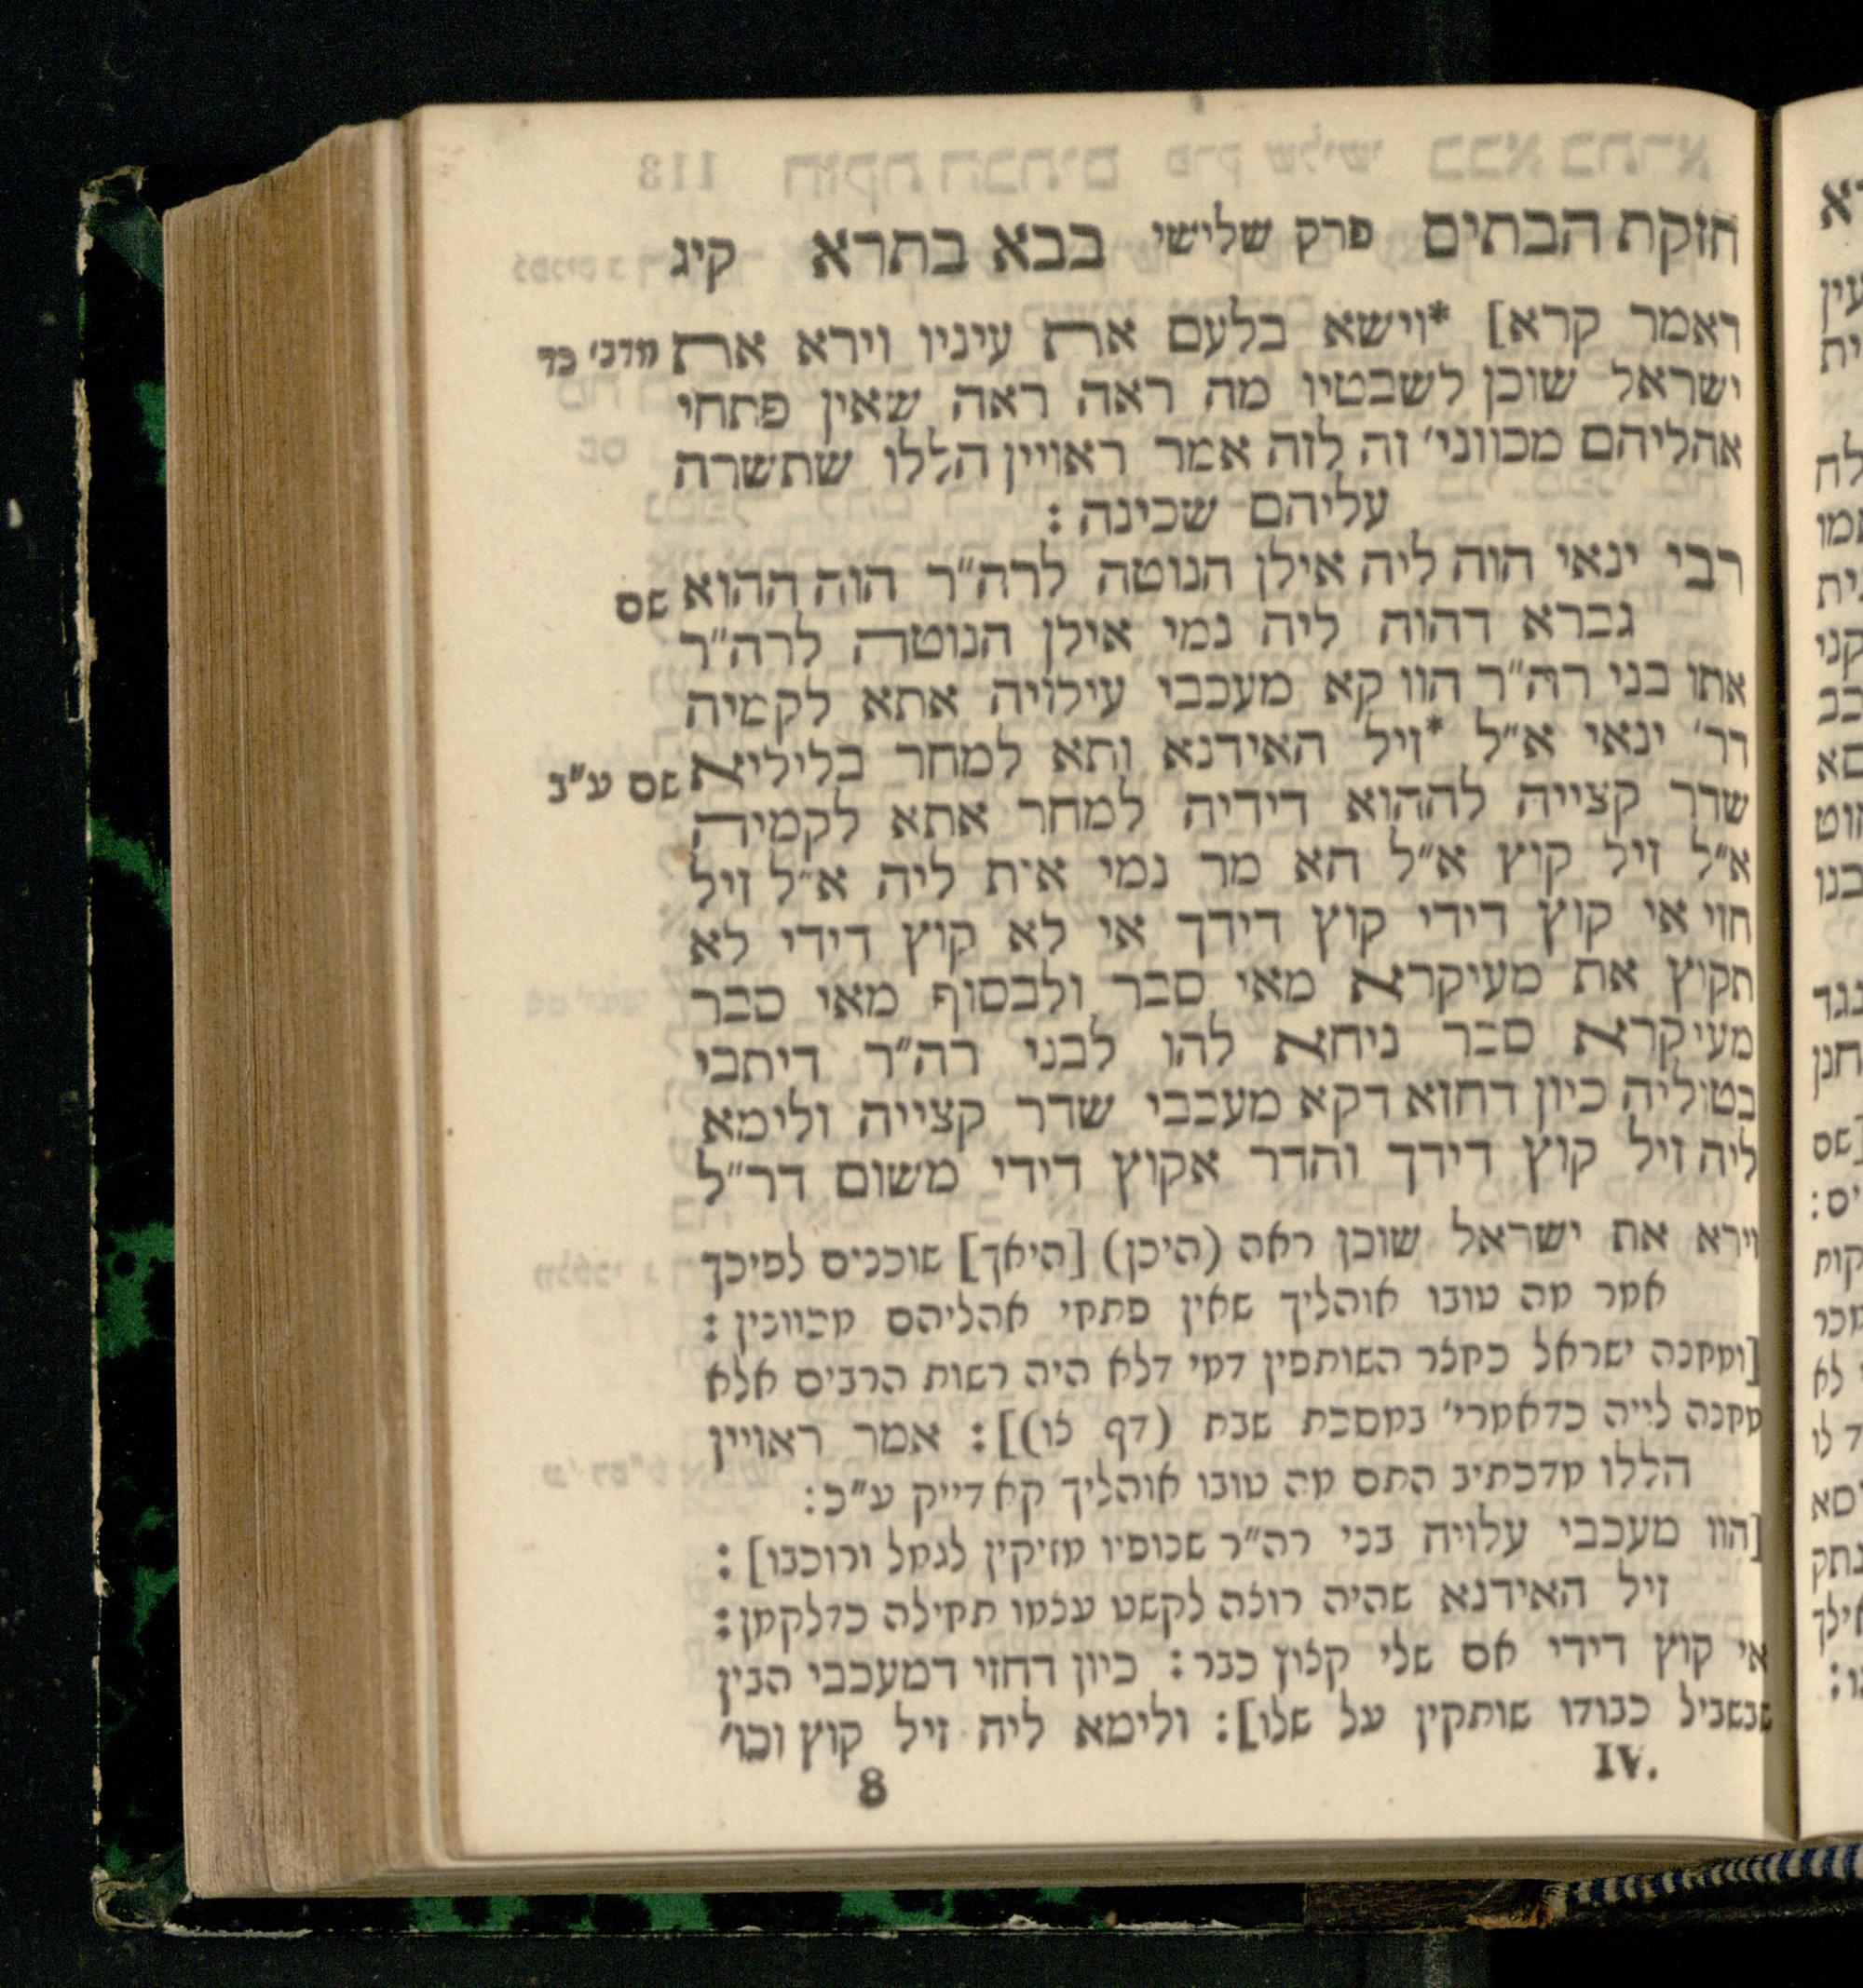 חזקת הבתים פרק שלישי בבא בתרא קיג
דאמר קרא] *וישא בלעם את עיניו וירא את
מדב׳ כד
ישראל שוכן לשבטיו מה ראה ראה שאין פתחי
אהליהם מכווני׳ זה לזה אמר ראויין הללו שתשרה
עליהם שכינה:
רבי ינאי הוה ליה אילן הנוטה לרה״ר הוה ההוא
שם
גברא דהוה ליה נמי אילן הנוטה לרה״ר
אתו בני רה״ר הוו קא מעכבי עילויה אתא לקמיה
דר׳ ינאי א״ל *זיל האידנא ותא למחר בליליא
שם ע״ב
שדר קצייה לההוא דידיה למחר אתא לקמיה
א״ל זיל קוץ א״ל הא מר נמי אית ליה א״ל זיל
חוי אי קוץ דידי קוץ דידך אי לא קוץ דידי לא
תקוץ את מעיקרא מאי סבר ולבסוף מאי סבר
מעיקרא סבר ניחא להו לבני רה״ר דיתבי
בטוליה כיון דחזא דקא מעכבי שדר קצייה ולימא
ליה זיל קוץ דידך והדר אקוץ דידי משום דר״ל
וירא את ישראל שוכן ראה (היכן) [היאך] שוכנים לפיכך
אמר מה טובו אוהליך שאין פתחי אהליהם מכוונין:
[ומחנה ישראל כחצר השותפין דמי דלא היה רשות הרבים אלא
מחנה לוייה כדאמרי׳ במסכת שבת (דף צו)]: אמר ראויין
הללו מדכתיב התם מה טובו אוהליך קא דייק ע״כ:
[הוו מעכבי עלויה בני רה״ר שנופיו מזיקין לגמל ורוכבו]:
זיל האידנא שהיה רוצה לקשט עצמו תחילה כדלקמן:
אי קוץ דידי אם שלי קצוץ כבר: כיון דחזי דמעכבי הבין
שבשביל כבודו שותקין על שלו]: ולימא ליה זיל קוץ וכו׳
IV. 8